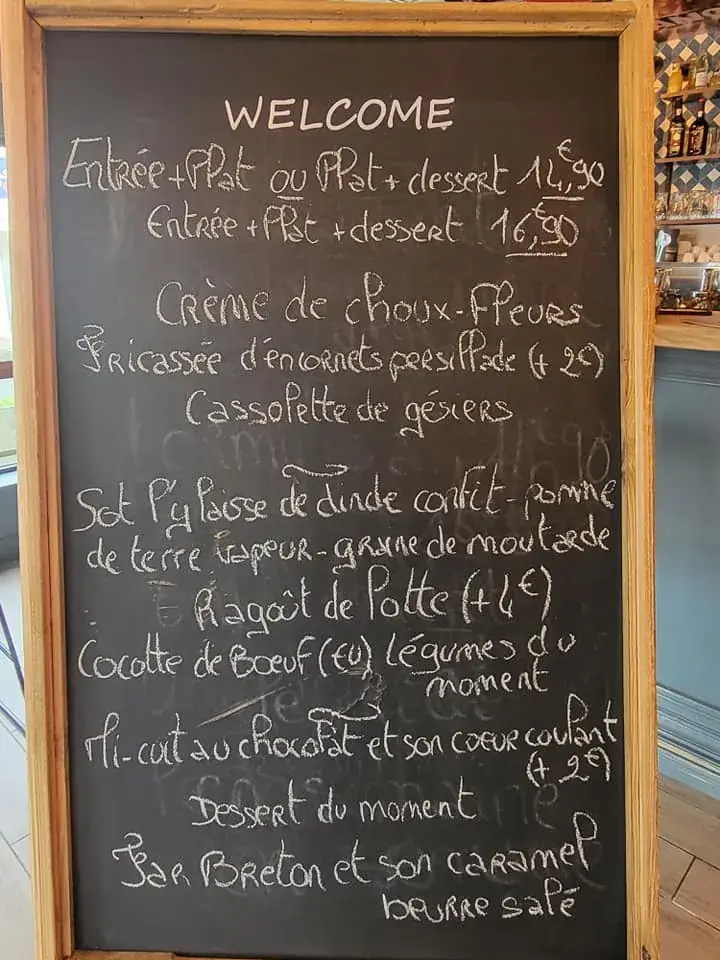 WELCOME
Entrée + Plat ou Plat + dessert 14,€90
Entrée + Plat + dessert 16,€90
Crème de choux-Fleurs
Fricassée d'encornets persillade (+ 2€)
Cassolette de gésiers
Sot l'y laisse de dinde confit - pomme
de terre vapeur - graine de moutarde
Ragoût de Lotte (+ 4€)
Cocotte de Boeuf (EU) légumes du
moment
Mi-cuit au chocolat et son coeur coulant
(+ 2€)
Dessert du moment
Far Breton et son caramel
beurre salé